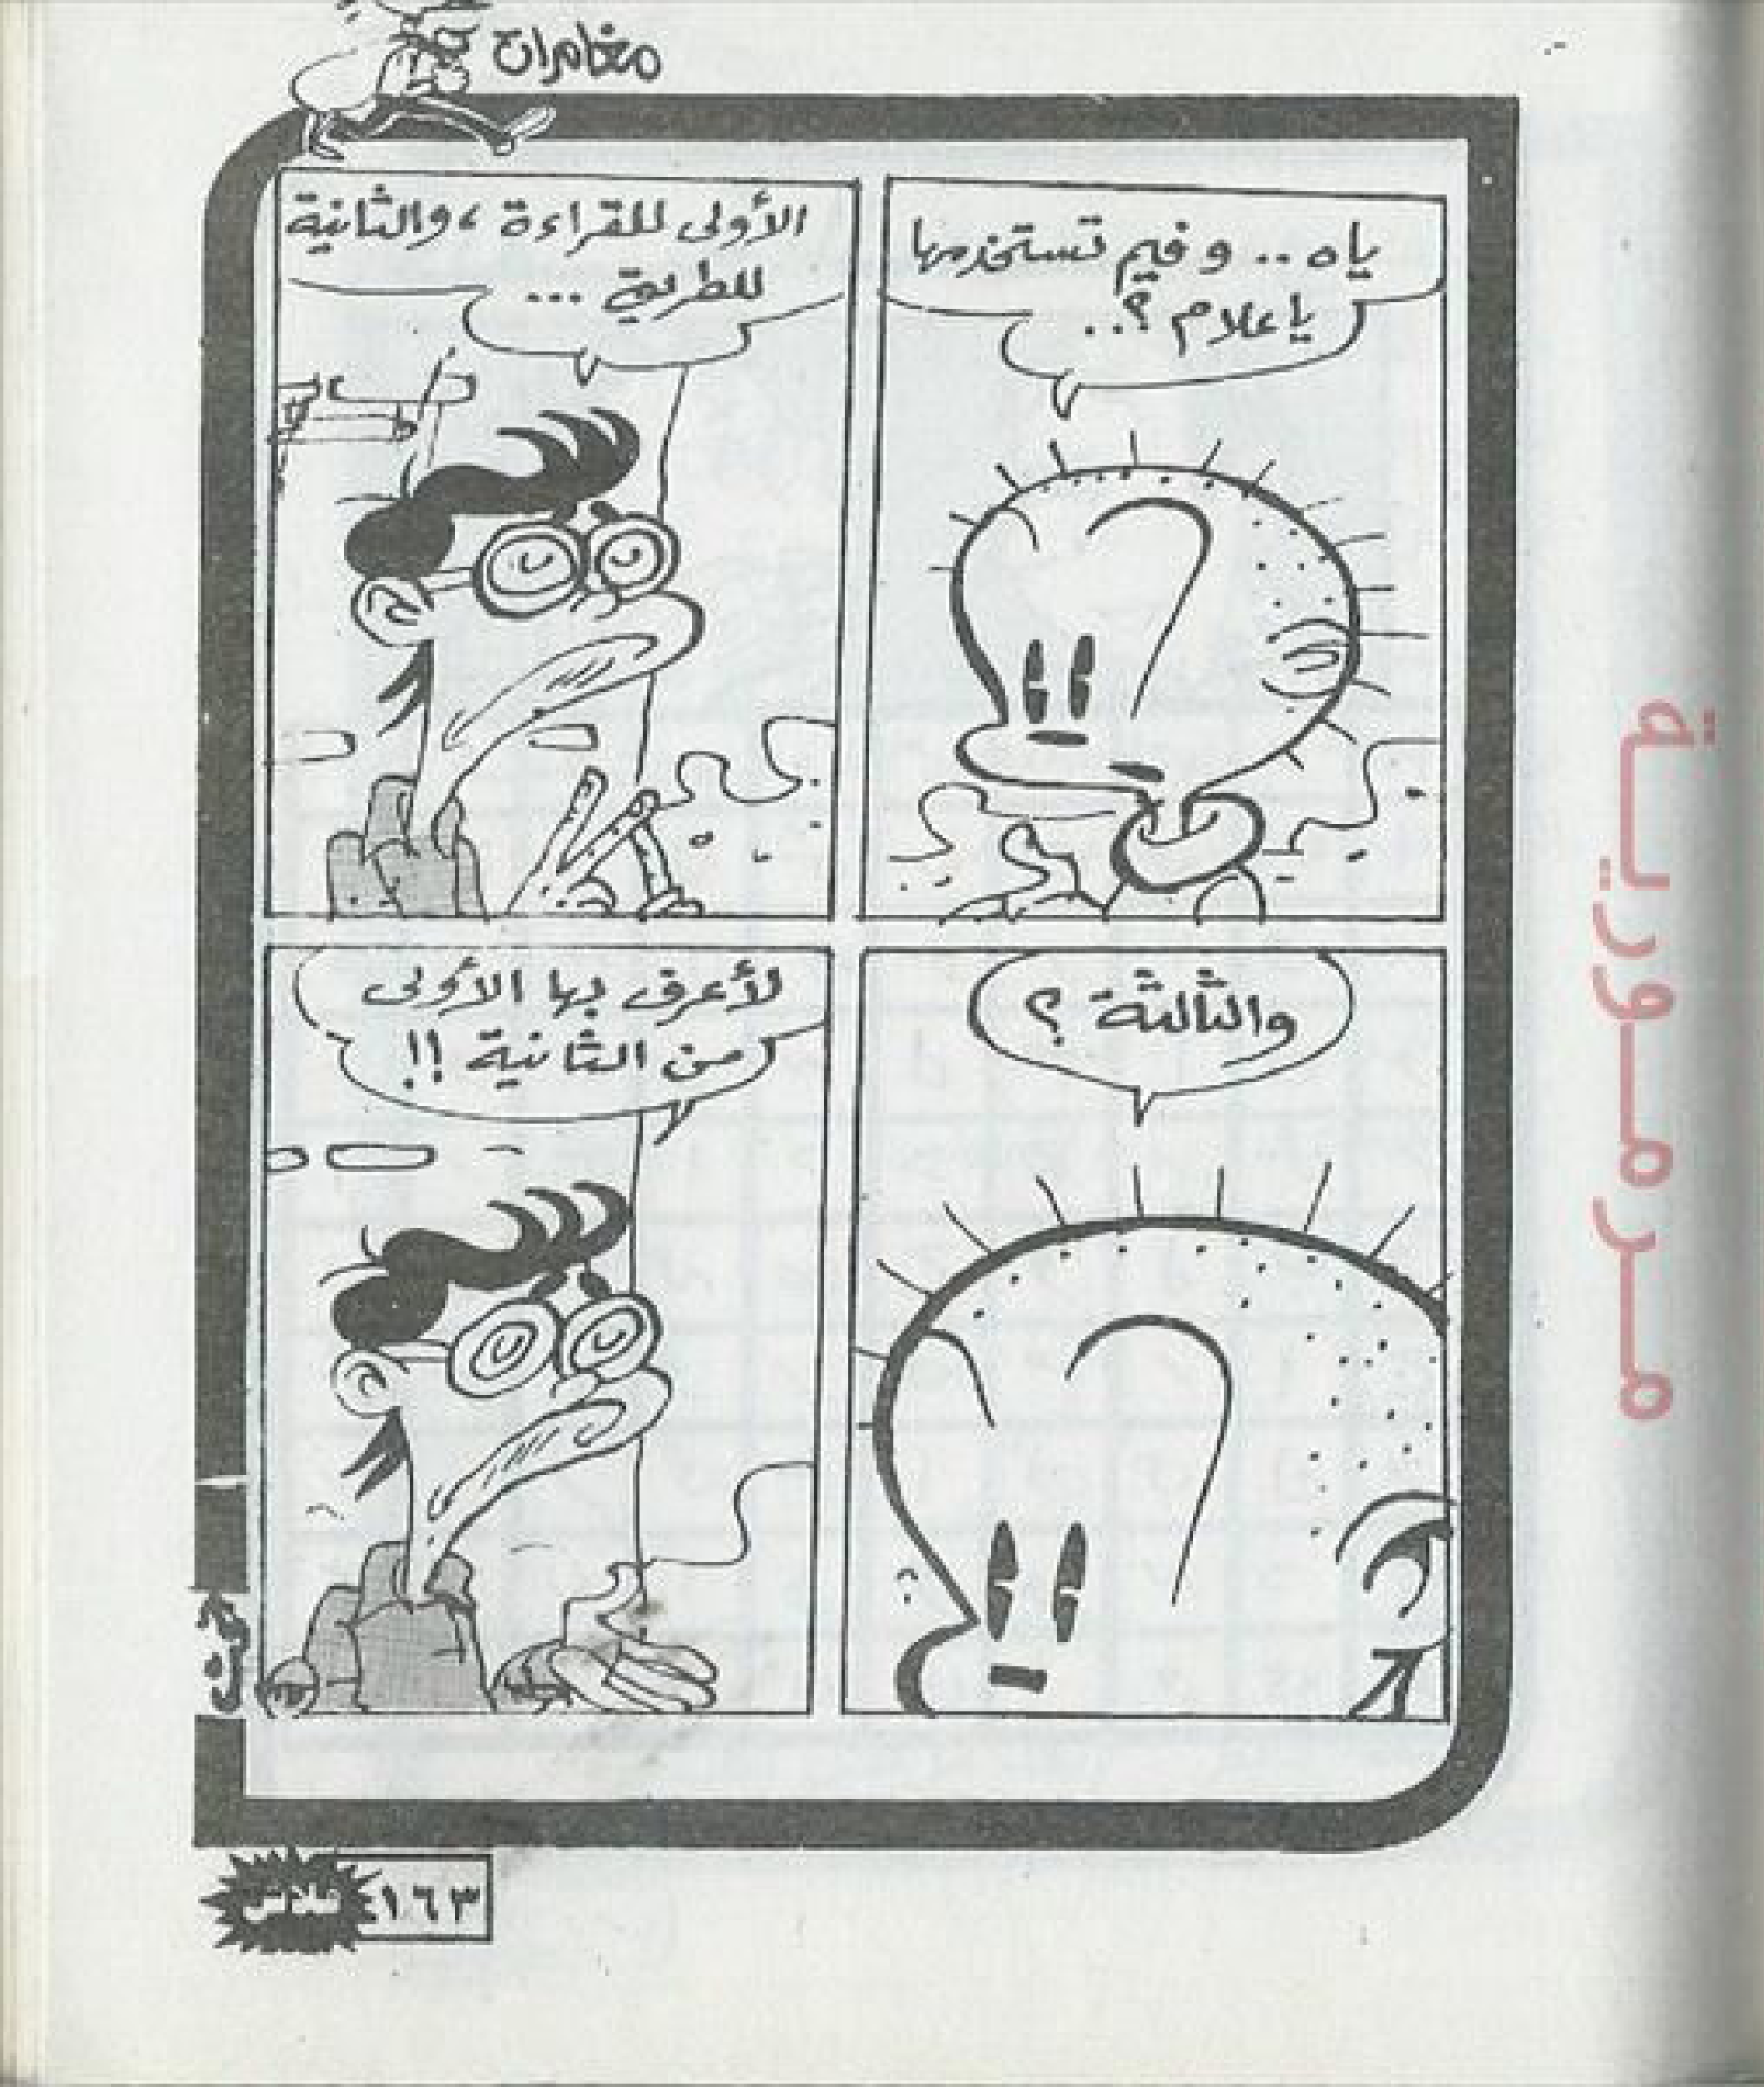 مغامرات
ياه .. وفيم تستخدمها
يا علام ؟..
الأولى للقراءة ، والثانية
للطريق ...
والثالثة ؟
لأعرف بها الأولى
من الثانية !!
مرمورية
فلاش ١٦٣